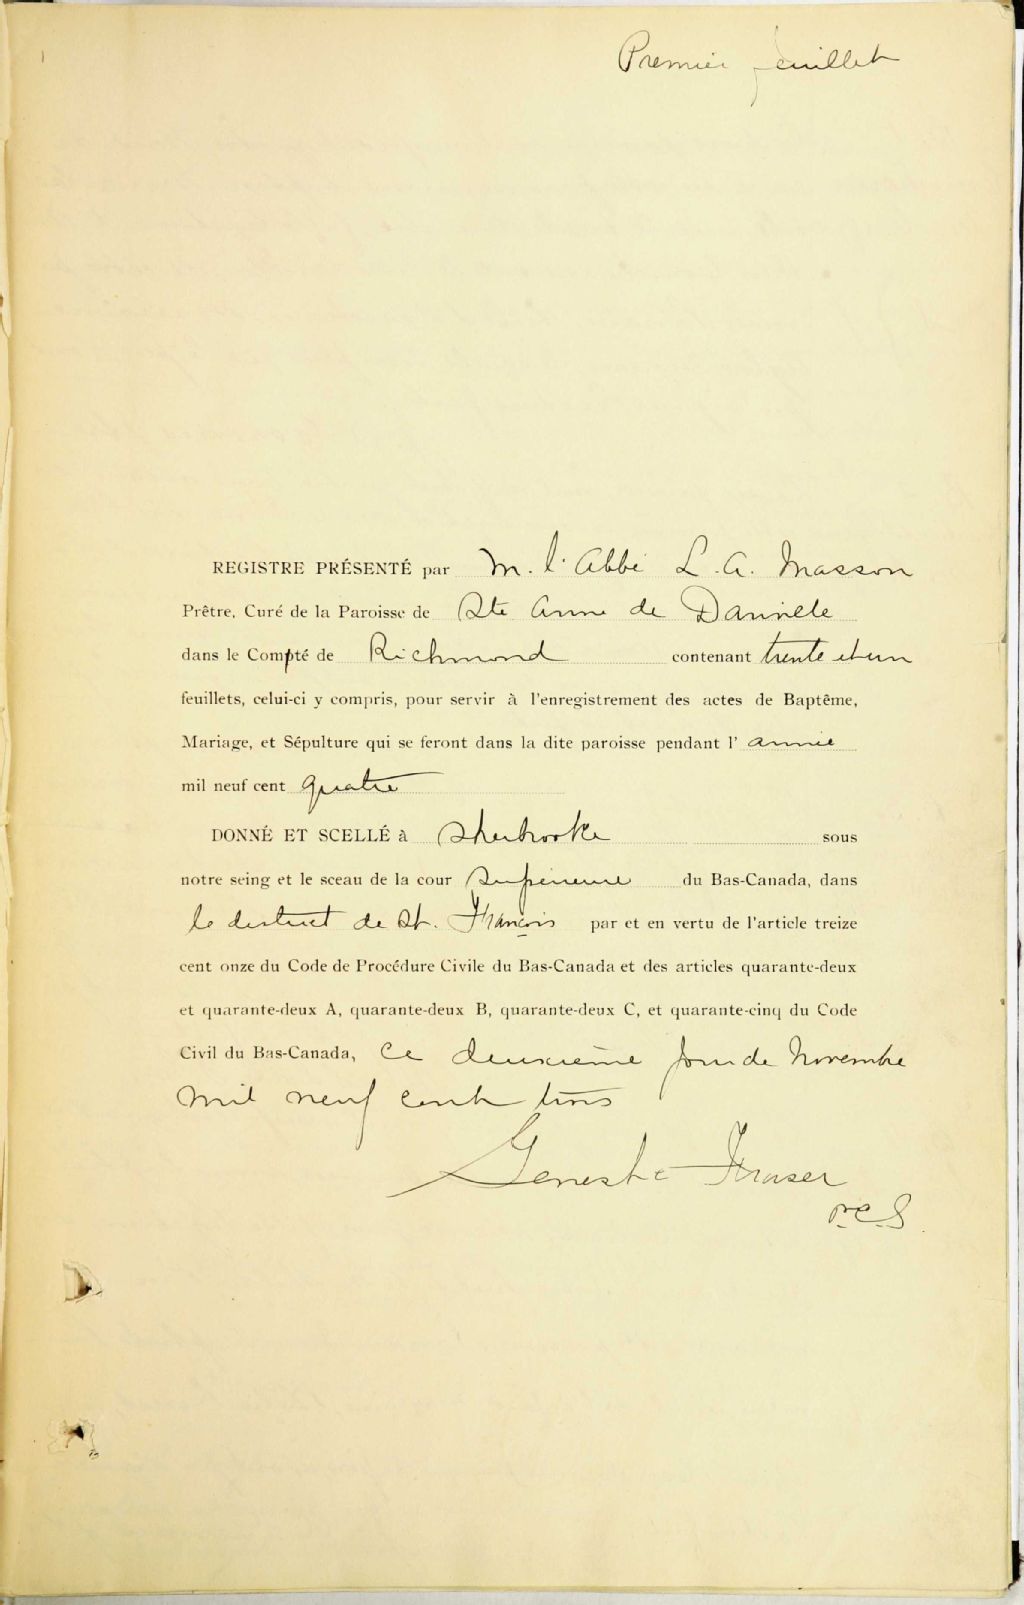 Premier feuillet
REGISTRE PRÉSENTÉ par M. l'Abbé L. A. Masson
Prêtre, Curé de la Paroisse de Ste Anne de Danville
dans le Compté de Richmond contenant trente et un
feuillets, celui-ci y compris, pour servir à l'enregistrement des actes de Baptême,
Mariage, et Sépulture qui se feront dans la dite paroisse pendant l' année
mil neuf cent quatre
DONNÉ ET SCELLÉ à Sherbrooke sous
notre seing et le sceau de la cour Supérieure du Bas-Canada, dans
le district de St. François par et en vertu de l'article treize
cent onze du Code de Procédure Civile du Bas-Canada et des articles quarante-deux
et quarante-deux A, quarante-deux B, quarante-deux C, et quarante-cinq du Code
Civil du Bas-Canada, ce deuxième jour de Novembre
mil neuf cent trois
Genest & Fraser
P.C.S.